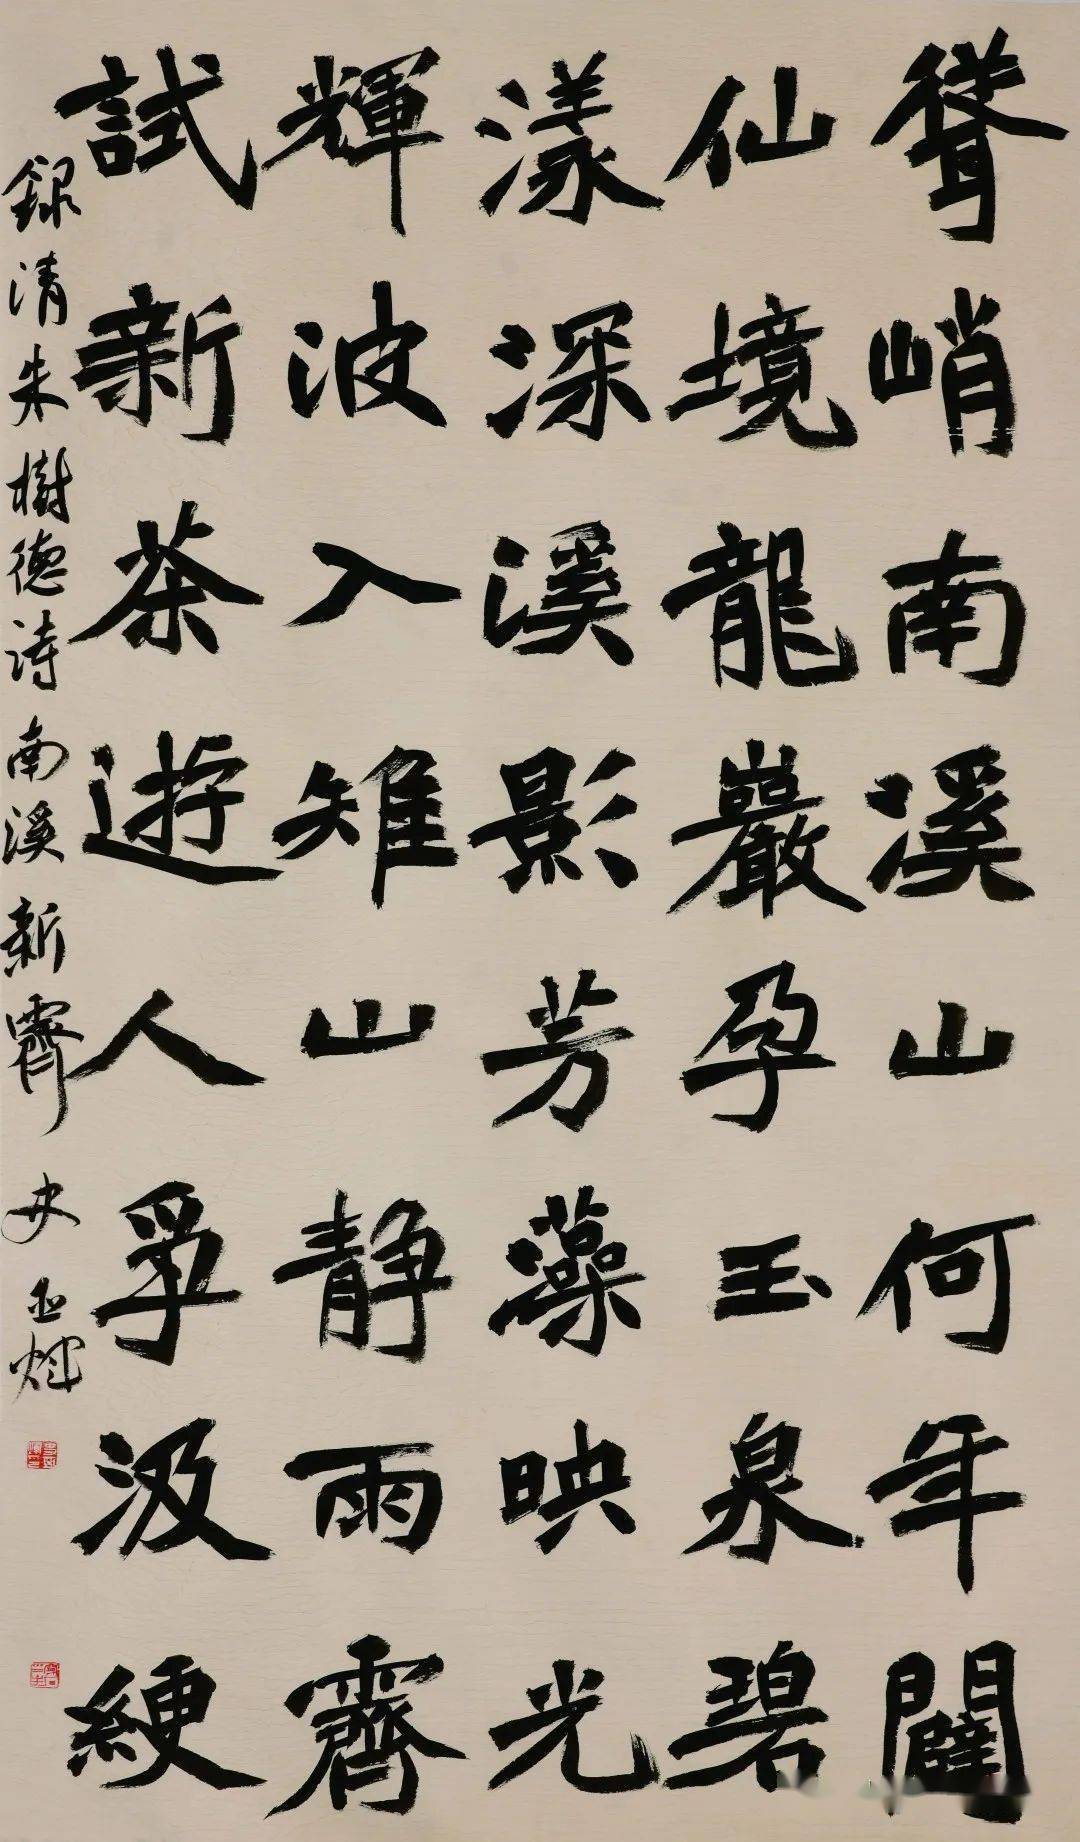 聳峭南溪山何年闢
仙境龍巖孕玉泉碧
漾深溪影芳藻映光
輝波入雉山靜雨霽
試新茶遊人爭汲綆
録清朱樹德詩南溪新霽 史亞輝